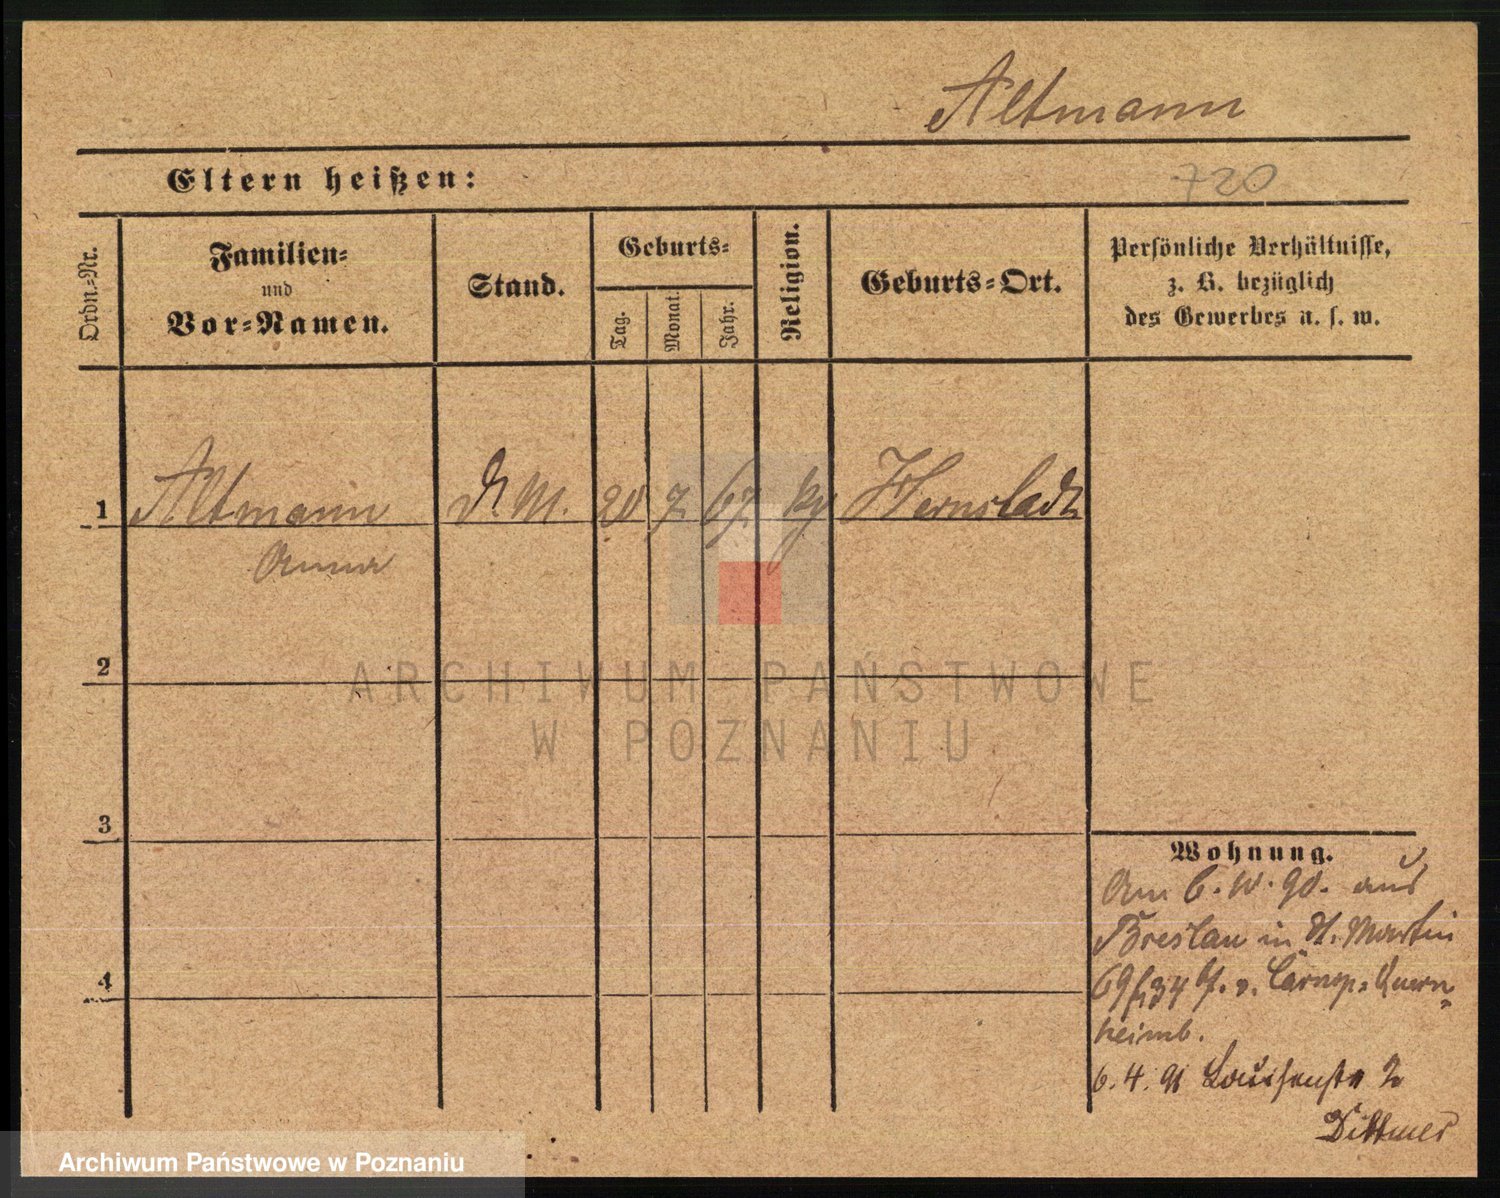 Altmann
Eltern heißen:
720
Ordn.-Nr.
Familien-
und
Vor-Namen.
Stand.
Geburts-
Tag.
Monat.
Jahr.
Religion.
Geburts-Ort.
Persönliche Verhältnisse,
z. B. bezüglich
des Gewerbes u. s. w.
1
Altmann
D. M.
20
7
67
Herrnstadt
Anna
2
3
4
ARCHIWUM PAŃSTWOWE
W POZNANIU
Wohnung.
Am 6. 10. 90. aus
Breslau in St. Martin
69
heimb.
6. 4. 91 Louisenstr 2
Dittmer
Archiwum Państwowe w Poznaniu